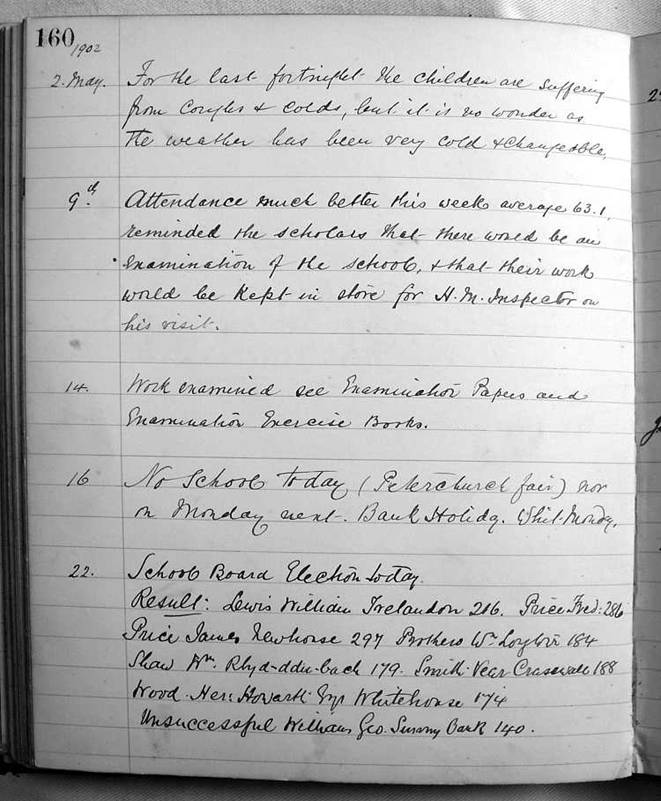 160
1902
2. May. For the last fortnight the children are suffering
from Coughs & Colds, but it is no wonder as
the weather has been very cold & changeable.
9th Attendance much better this week average 63.1.
reminded the scholars that there would be an
examination of the school, & that their work
would be kept in store for H.M. Inspector on
his visit.
14. Work examined see Examination Papers and
Examination Exercise Books.
16 No School today (Peterchurch fair) nor
on Monday next. Bank Holidy. Whit-Mondy.
22. School Board Election today.
Result: Lewis William Trelandon 216. Price Fred: 286
Price James Newhouse 297 Brothers Wm 184
Shaw Wm. Rhyd-ddu-bach 179. Smith Vicar Craswall 188
Wood Howarth Whitehouse 174
Unsuccessful Williams Geo. Sunny Bank 140.
2